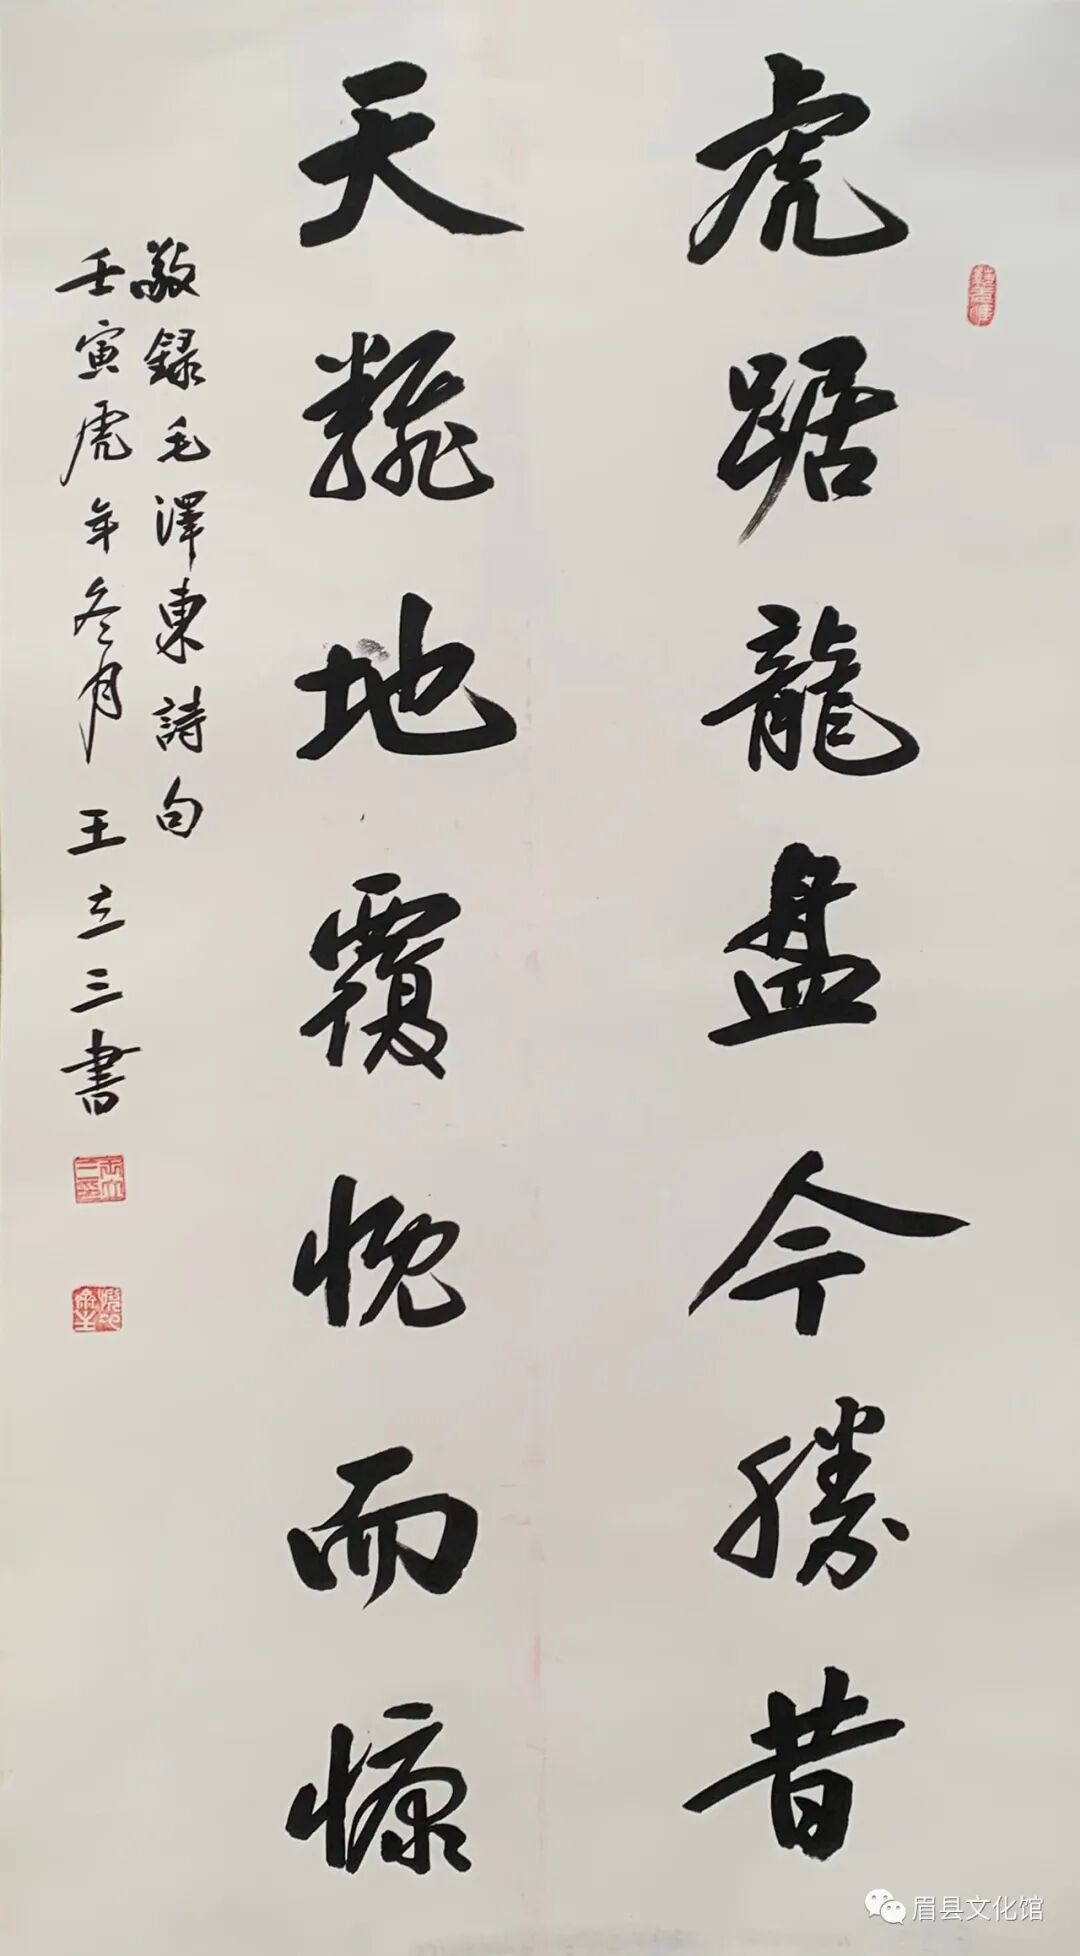 虎踞龍盘今勝昔
天飜地覆慨而慷
敬録毛澤東詩句
壬寅虎年冬月王立三書
眉县文化馆